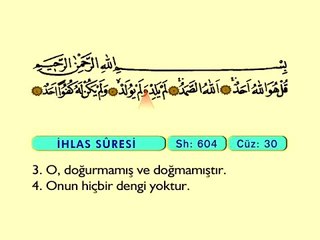 بِسْمِ اللّٰهِ الرَّحْمٰنِ الرَّحِيمِ
قُلْ هُوَ اللّٰهُ اَحَدٌ اَللّٰهُ الصَّمَدُ لَمْ يَلِدْ وَلَمْ يُولَدْ وَلَمْ يَكُنْ لَهُ كُفُوًا اَحَدٌ
İHLAS SÛRESİ Sh: 604 Cüz: 30
3. O, doğurmamış ve doğmamıştır.
4. Onun hiçbir dengi yoktur.